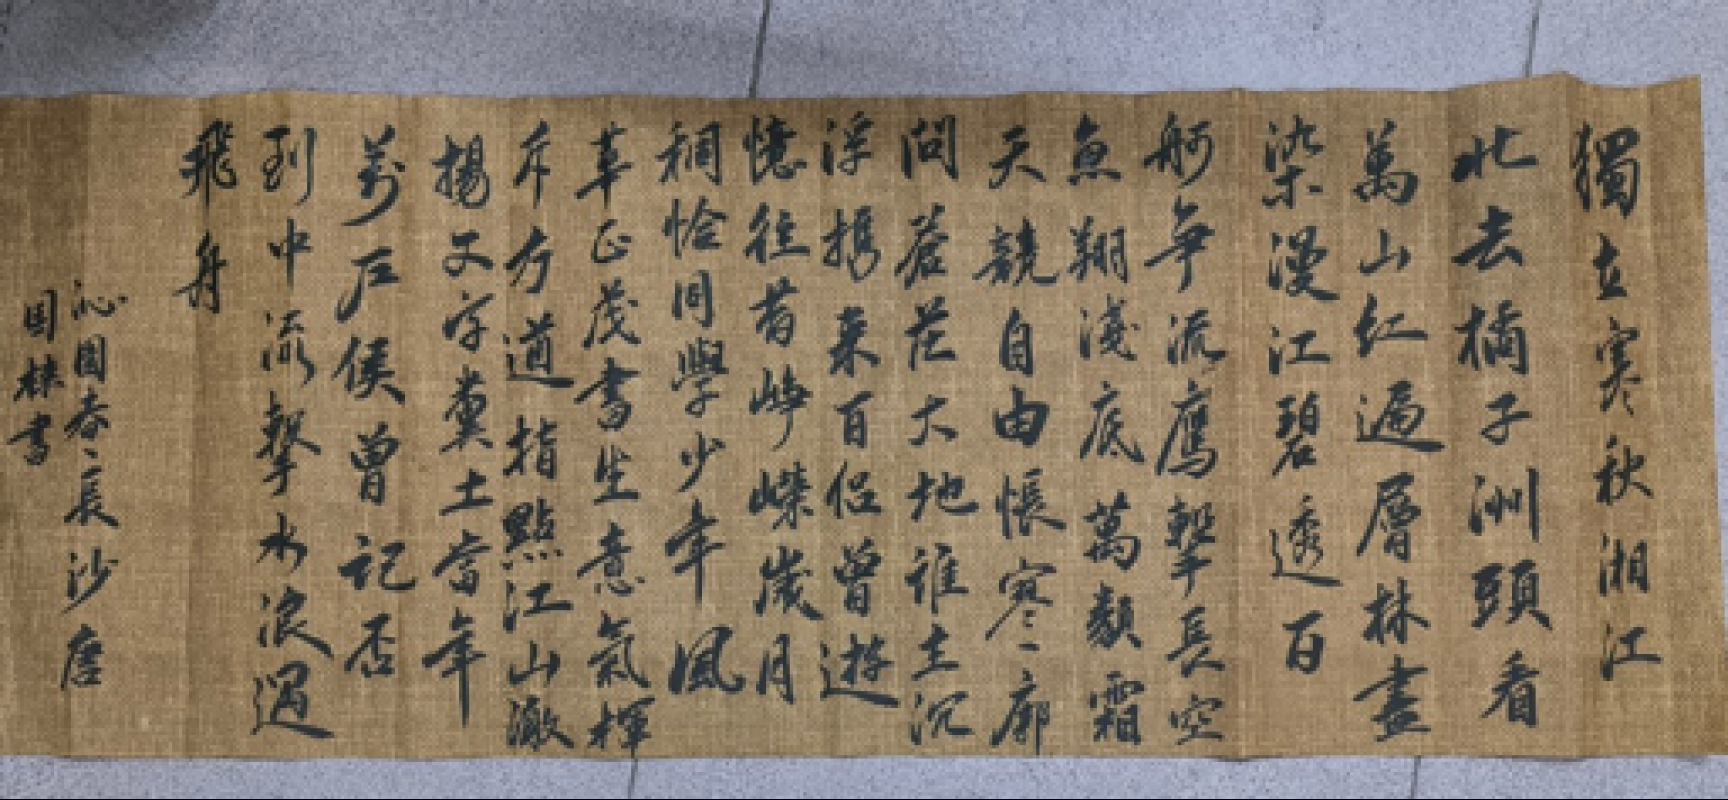 獨立寒秋湘江
北去橘子洲頭看
萬山紅遍層林盡
染漫江碧透百
舸争流鹰擊長空
魚翔淺底萬類霜
天競自由悵寒廓
問蒼茫大地誰主沉
浮携来百侣曾遊
憶往昔崢嶸歲月
稠恰同學少年風
華正茂書生意氣揮
斥方遒指點江山激
揚文字糞土當年
萬户侯曾記否
到中流擊水浪遏
飛舟
沁園春·長沙 唐
国林書